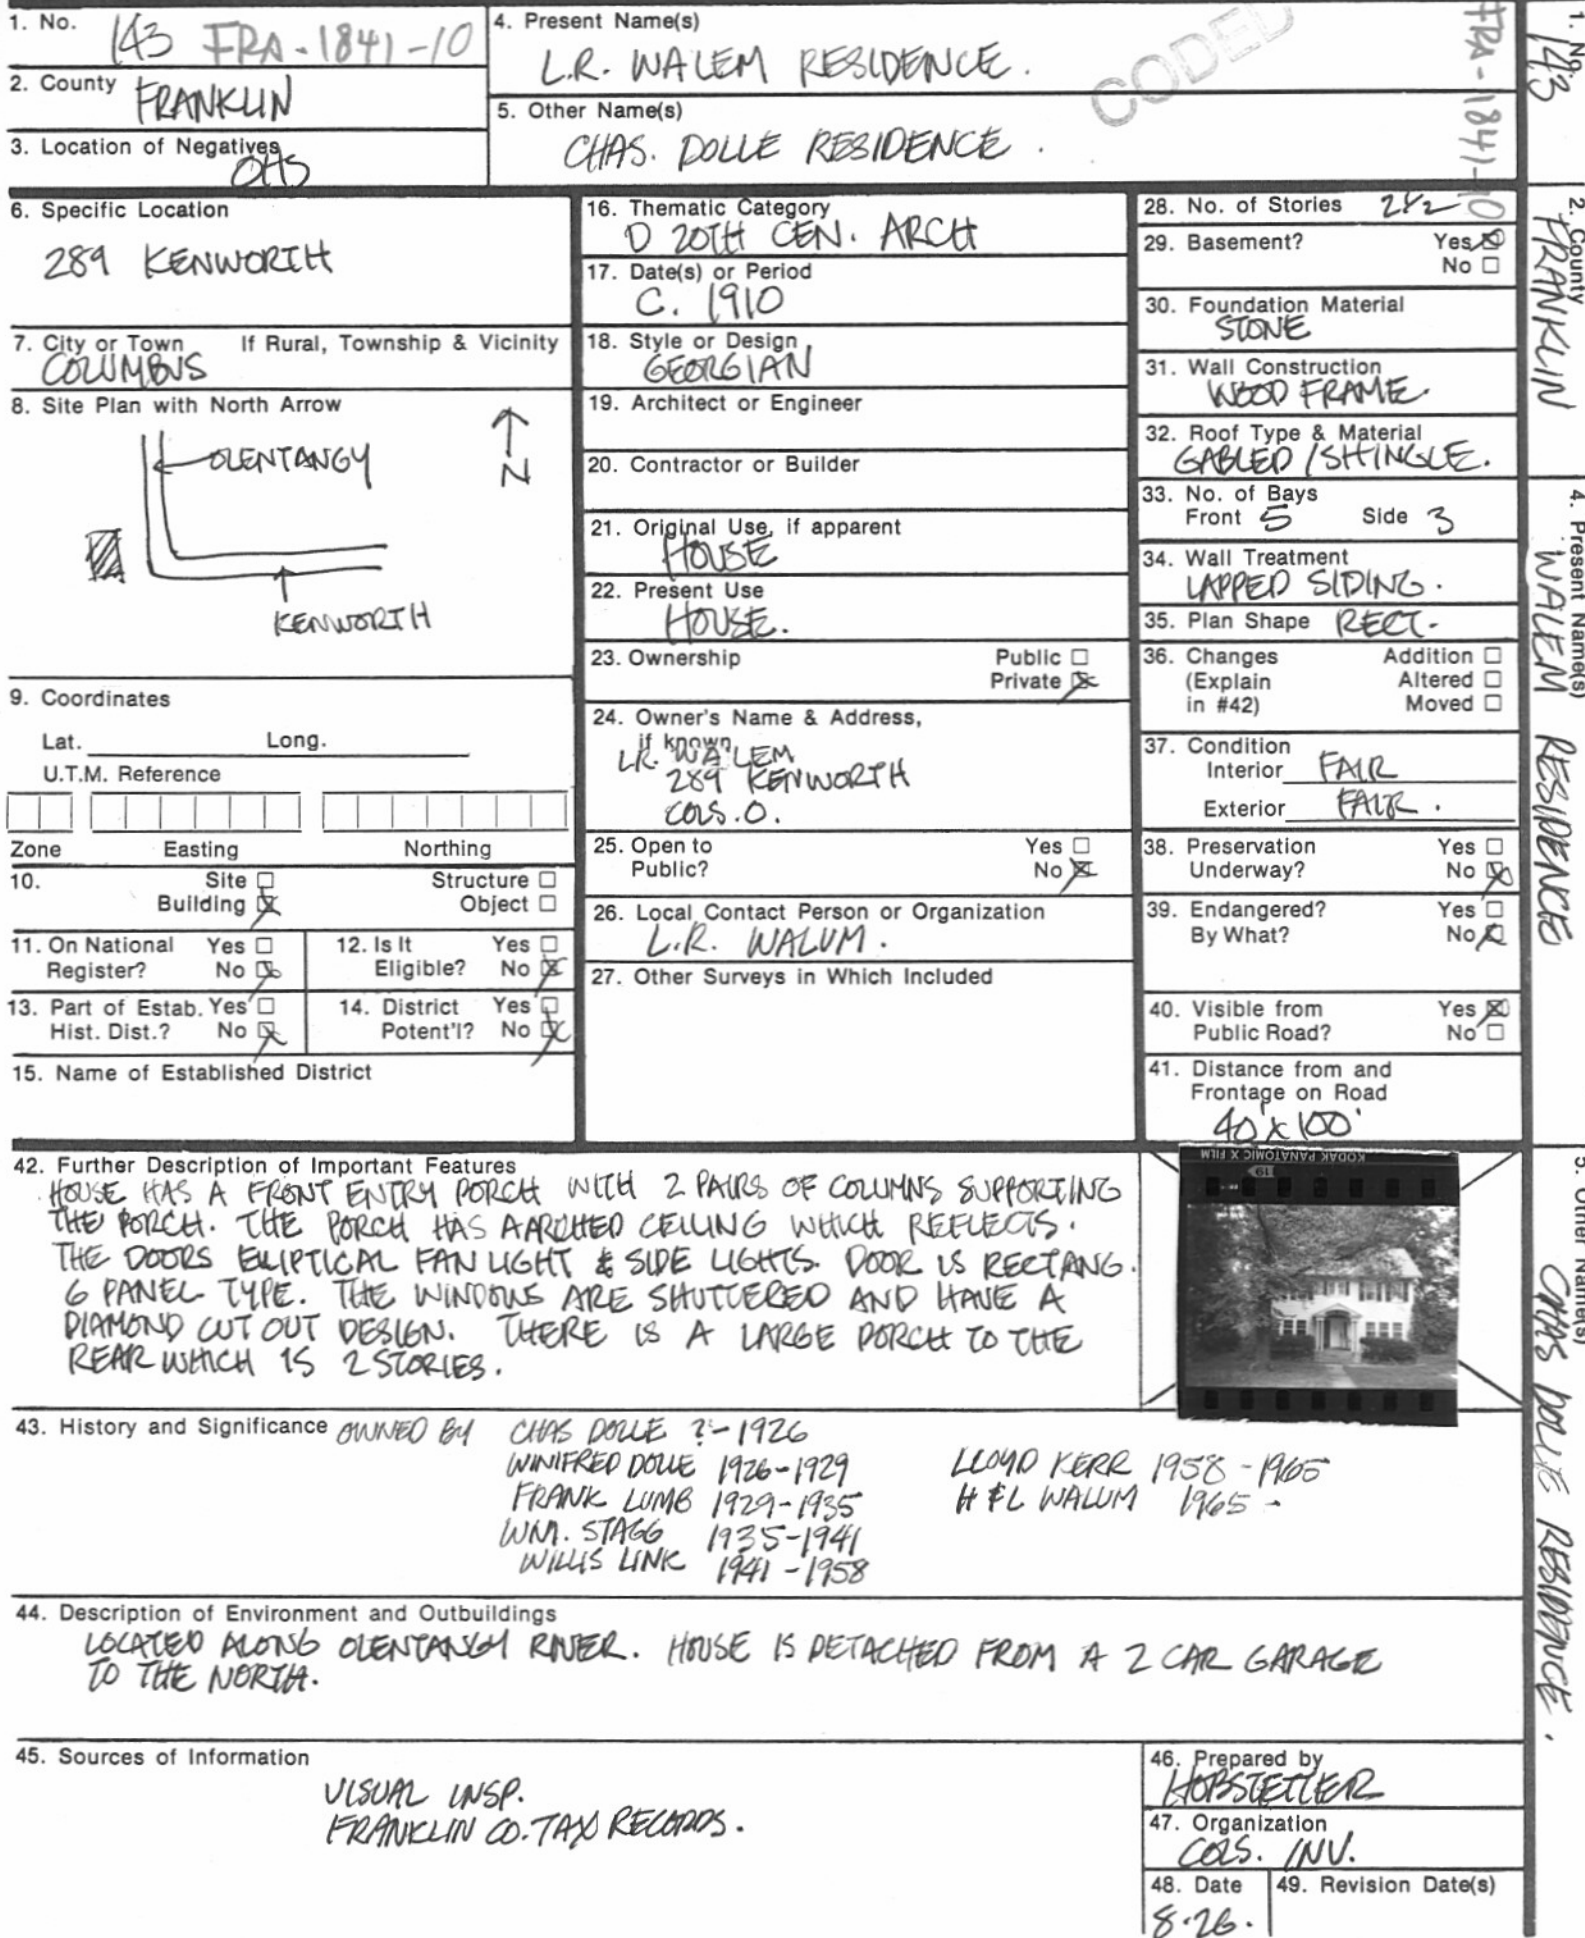 1. No. 143 FRA-1841-10
2. County FRANKLIN
3. Location of Negatives OHS
4. Present Name(s)
L.R. WALEM RESIDENCE.
5. Other Name(s)
CHAS. DOLLE RESIDENCE.
CODED
FRA-1841-10
6. Specific Location
289 KENWORTH
7. City or Town If Rural, Township & Vicinity
COLUMBUS
8. Site Plan with North Arrow
OLENTANGY
N
KENWORTH
9. Coordinates
Lat. Long.
U.T.M. Reference
Zone Easting Northing
10. Site Structure
Building Object
11. On National Yes
Register? No
12. Is It Yes
Eligible? No
13. Part of Estab. Yes
Hist. Dist.? No
14. District Yes
Potent'l? No
15. Name of Established District
16. Thematic Category
D 20TH CEN. ARCH
17. Date(s) or Period
C. 1910
18. Style or Design
GEORGIAN
19. Architect or Engineer
20. Contractor or Builder
21. Original Use, if apparent
HOUSE
22. Present Use
HOUSE.
23. Ownership Public
Private
24. Owner's Name & Address,
if known
L.R. WALEM
289 KENWORTH
COLS. O.
25. Open to Yes
Public? No
26. Local Contact Person or Organization
L.R. WALUM.
27. Other Surveys in Which Included
28. No. of Stories 2 1/2
29. Basement? Yes
No
30. Foundation Material
STONE
31. Wall Construction
WOOD FRAME.
32. Roof Type & Material
GABLED / SHINGLE.
33. No. of Bays
Front 5 Side 3
34. Wall Treatment
LAPPED SIDING.
35. Plan Shape RECT.
36. Changes Addition
(Explain Altered
in #42) Moved
37. Condition
Interior FAIR
Exterior FAIR.
38. Preservation Yes
Underway? No
39. Endangered? Yes
By What? No
40. Visible from Yes
Public Road? No
41. Distance from and
Frontage on Road
40' x 100'
42. Further Description of Important Features
HOUSE HAS A FRONT ENTRY PORCH WITH 2 PAIRS OF COLUMNS SUPPORTING
THE PORCH. THE PORCH HAS A ARCHED CEILING WHICH REFLECTS.
THE DOORS ELLIPTICAL FAN LIGHT & SIDE LIGHTS. DOOR IS RECTANG.
6 PANEL TYPE. THE WINDOWS ARE SHUTTERED AND HAVE A
DIAMOND CUT OUT DESIGN. THERE IS A LARGE PORCH TO THE
REAR WHICH IS 2 STORIES.
KODAK PANATOMIC X FILM
19
43. History and Significance OWNED BY CHAS DOLLE ?-1926
WINIFRED DOLLE 1926-1929
FRANK LUMB 1929-1935
WM. STAGG 1935-1941
WILLIS LINK 1941-1958
LLOYD KERR 1958-1965
H & L WALUM 1965-
44. Description of Environment and Outbuildings
LOCATED ALONG OLENTANGY RIVER. HOUSE IS DETACHED FROM A 2 CAR GARAGE
TO THE NORTH.
45. Sources of Information
VISUAL INSP.
FRANKLIN CO. TAX RECORDS.
46. Prepared by
HOBSTETTER
47. Organization
COLS. INV.
48. Date
8.26.
49. Revision Date(s)
1. No.
143
2. County
FRANKLIN
4. Present Name(s)
WALEM RESIDENCE
5. Other Name(s)
CHAS DOLLE RESIDENCE.